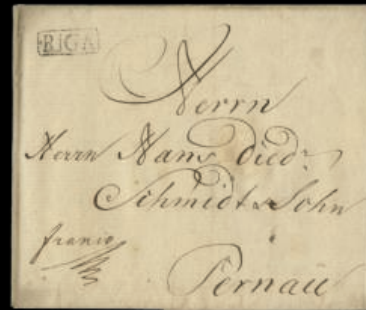 RIGA
Herrn
Herrn Hans Died:
Schmidt & Sohn
franco
Pernau